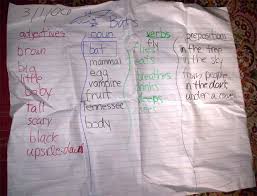 3/1/00
Bats
adjectives noun verbs prepositions
brown bat fly flies in the tree
big mammal eats in the sky
little egg breathes from people
baby vampire drinks in the dark
fruit fruit under a cave
tall Tennessee sleeps
scary body
black
upside-down